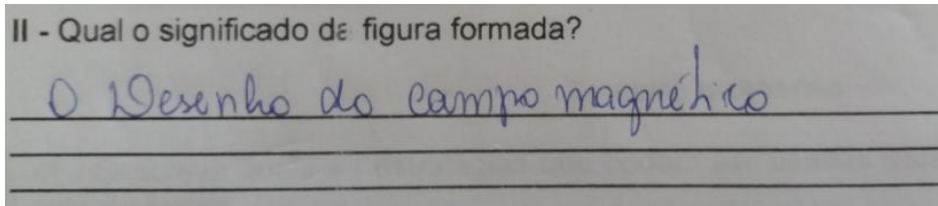 II - Qual o significado da figura formada?
O Desenho do campo magnético